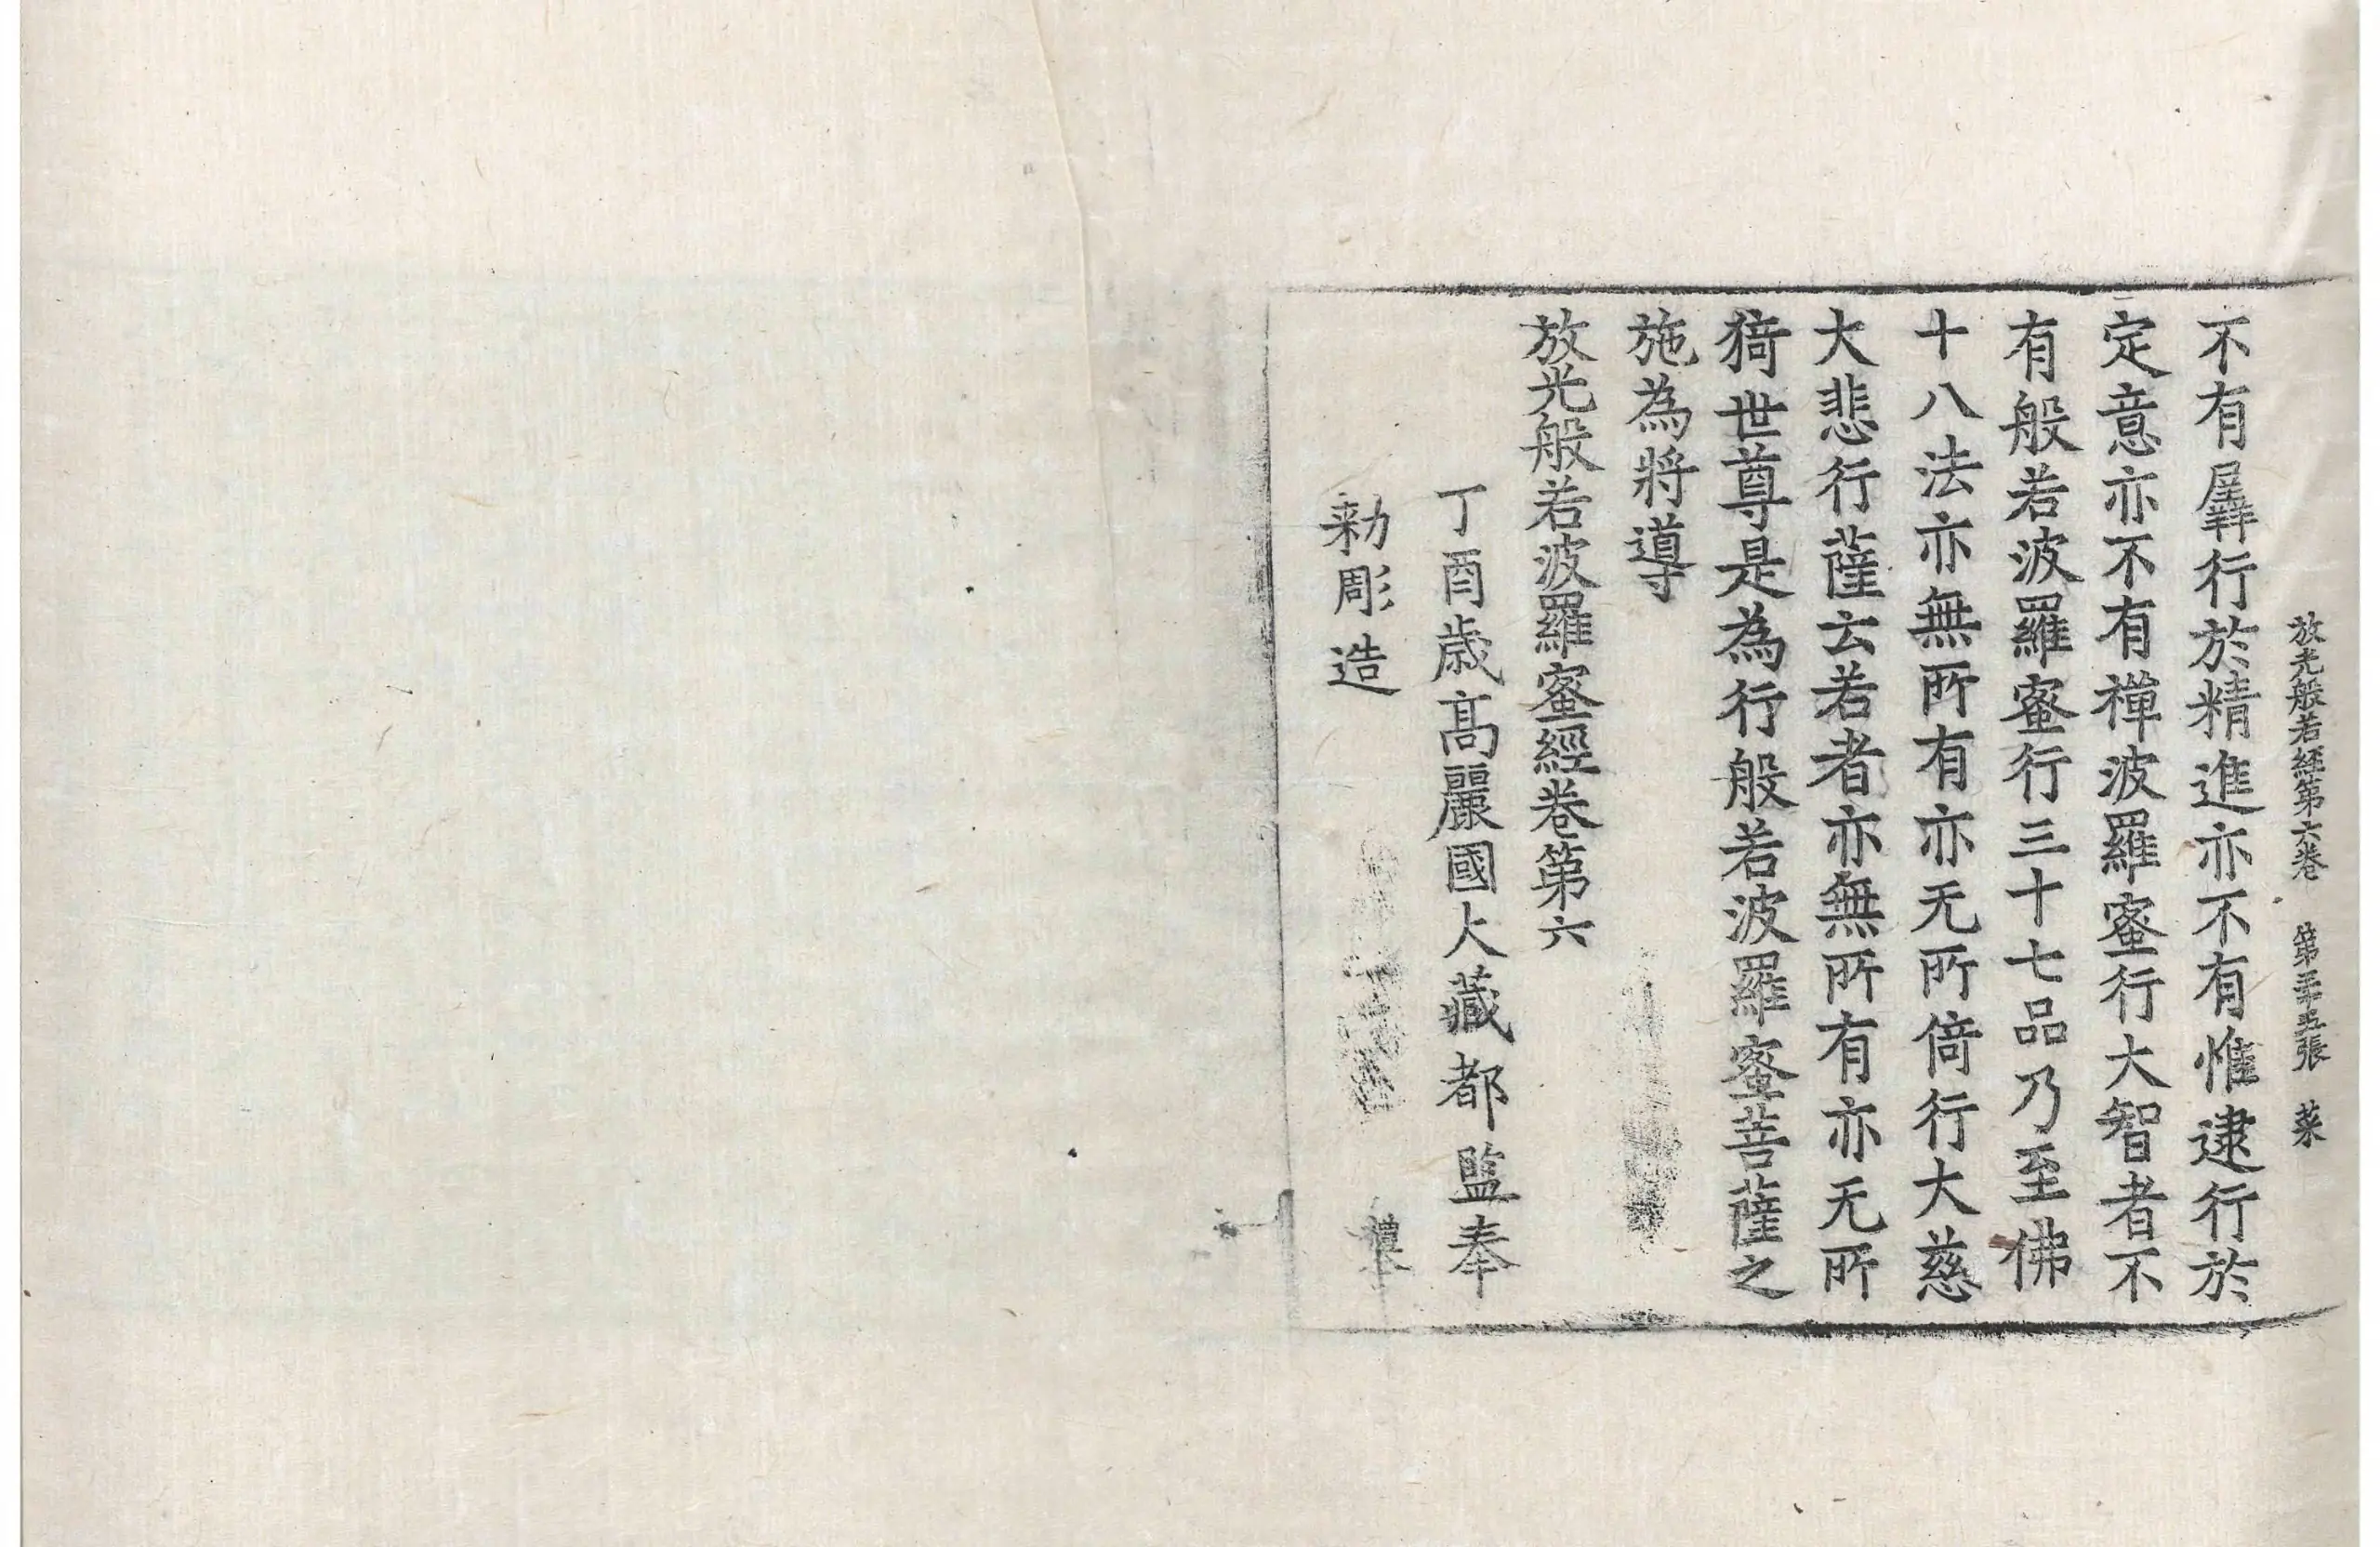 放光般若經第六卷 第二十五張 菜
不有羼行於精進亦不有惟逮行於
定意亦不有禪波羅蜜行大智者不
有般若波羅蜜行三十七品乃至佛
十八法亦無所有亦无所倚行大慈
大悲行薩云若者亦無所有亦无所
猗世尊是為行般若波羅蜜菩薩之
施為將導
放光般若波羅蜜經卷第六
丁酉歳髙麗國大藏都監奉
勑彫造